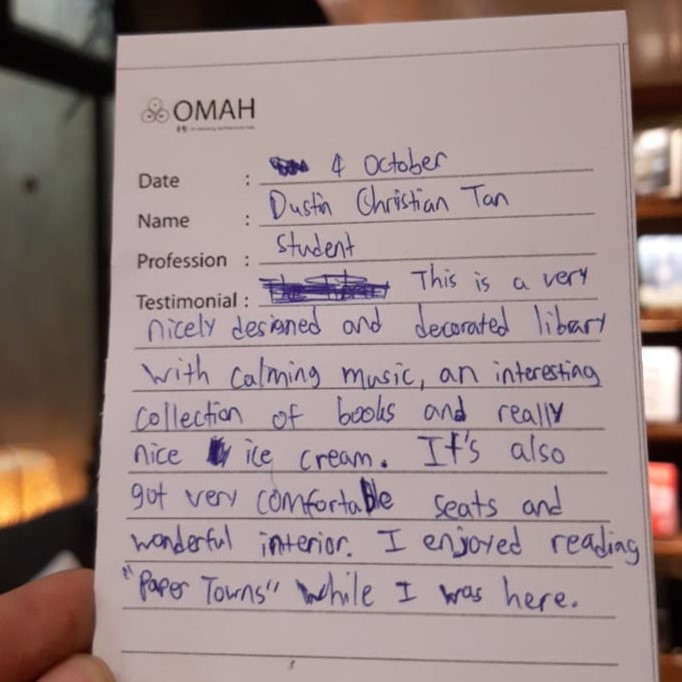 OMAH
Date : 4 October
Name : Dustin Christian Tan
Profession : Student
Testimonial : This is a very
nicely designed and decorated library
with calming music, an interesting
collection of books and really
nice ice cream. It's also
got very comfortable seats and
wonderful interior. I enjoyed reading
"Paper Towns" while I was here.